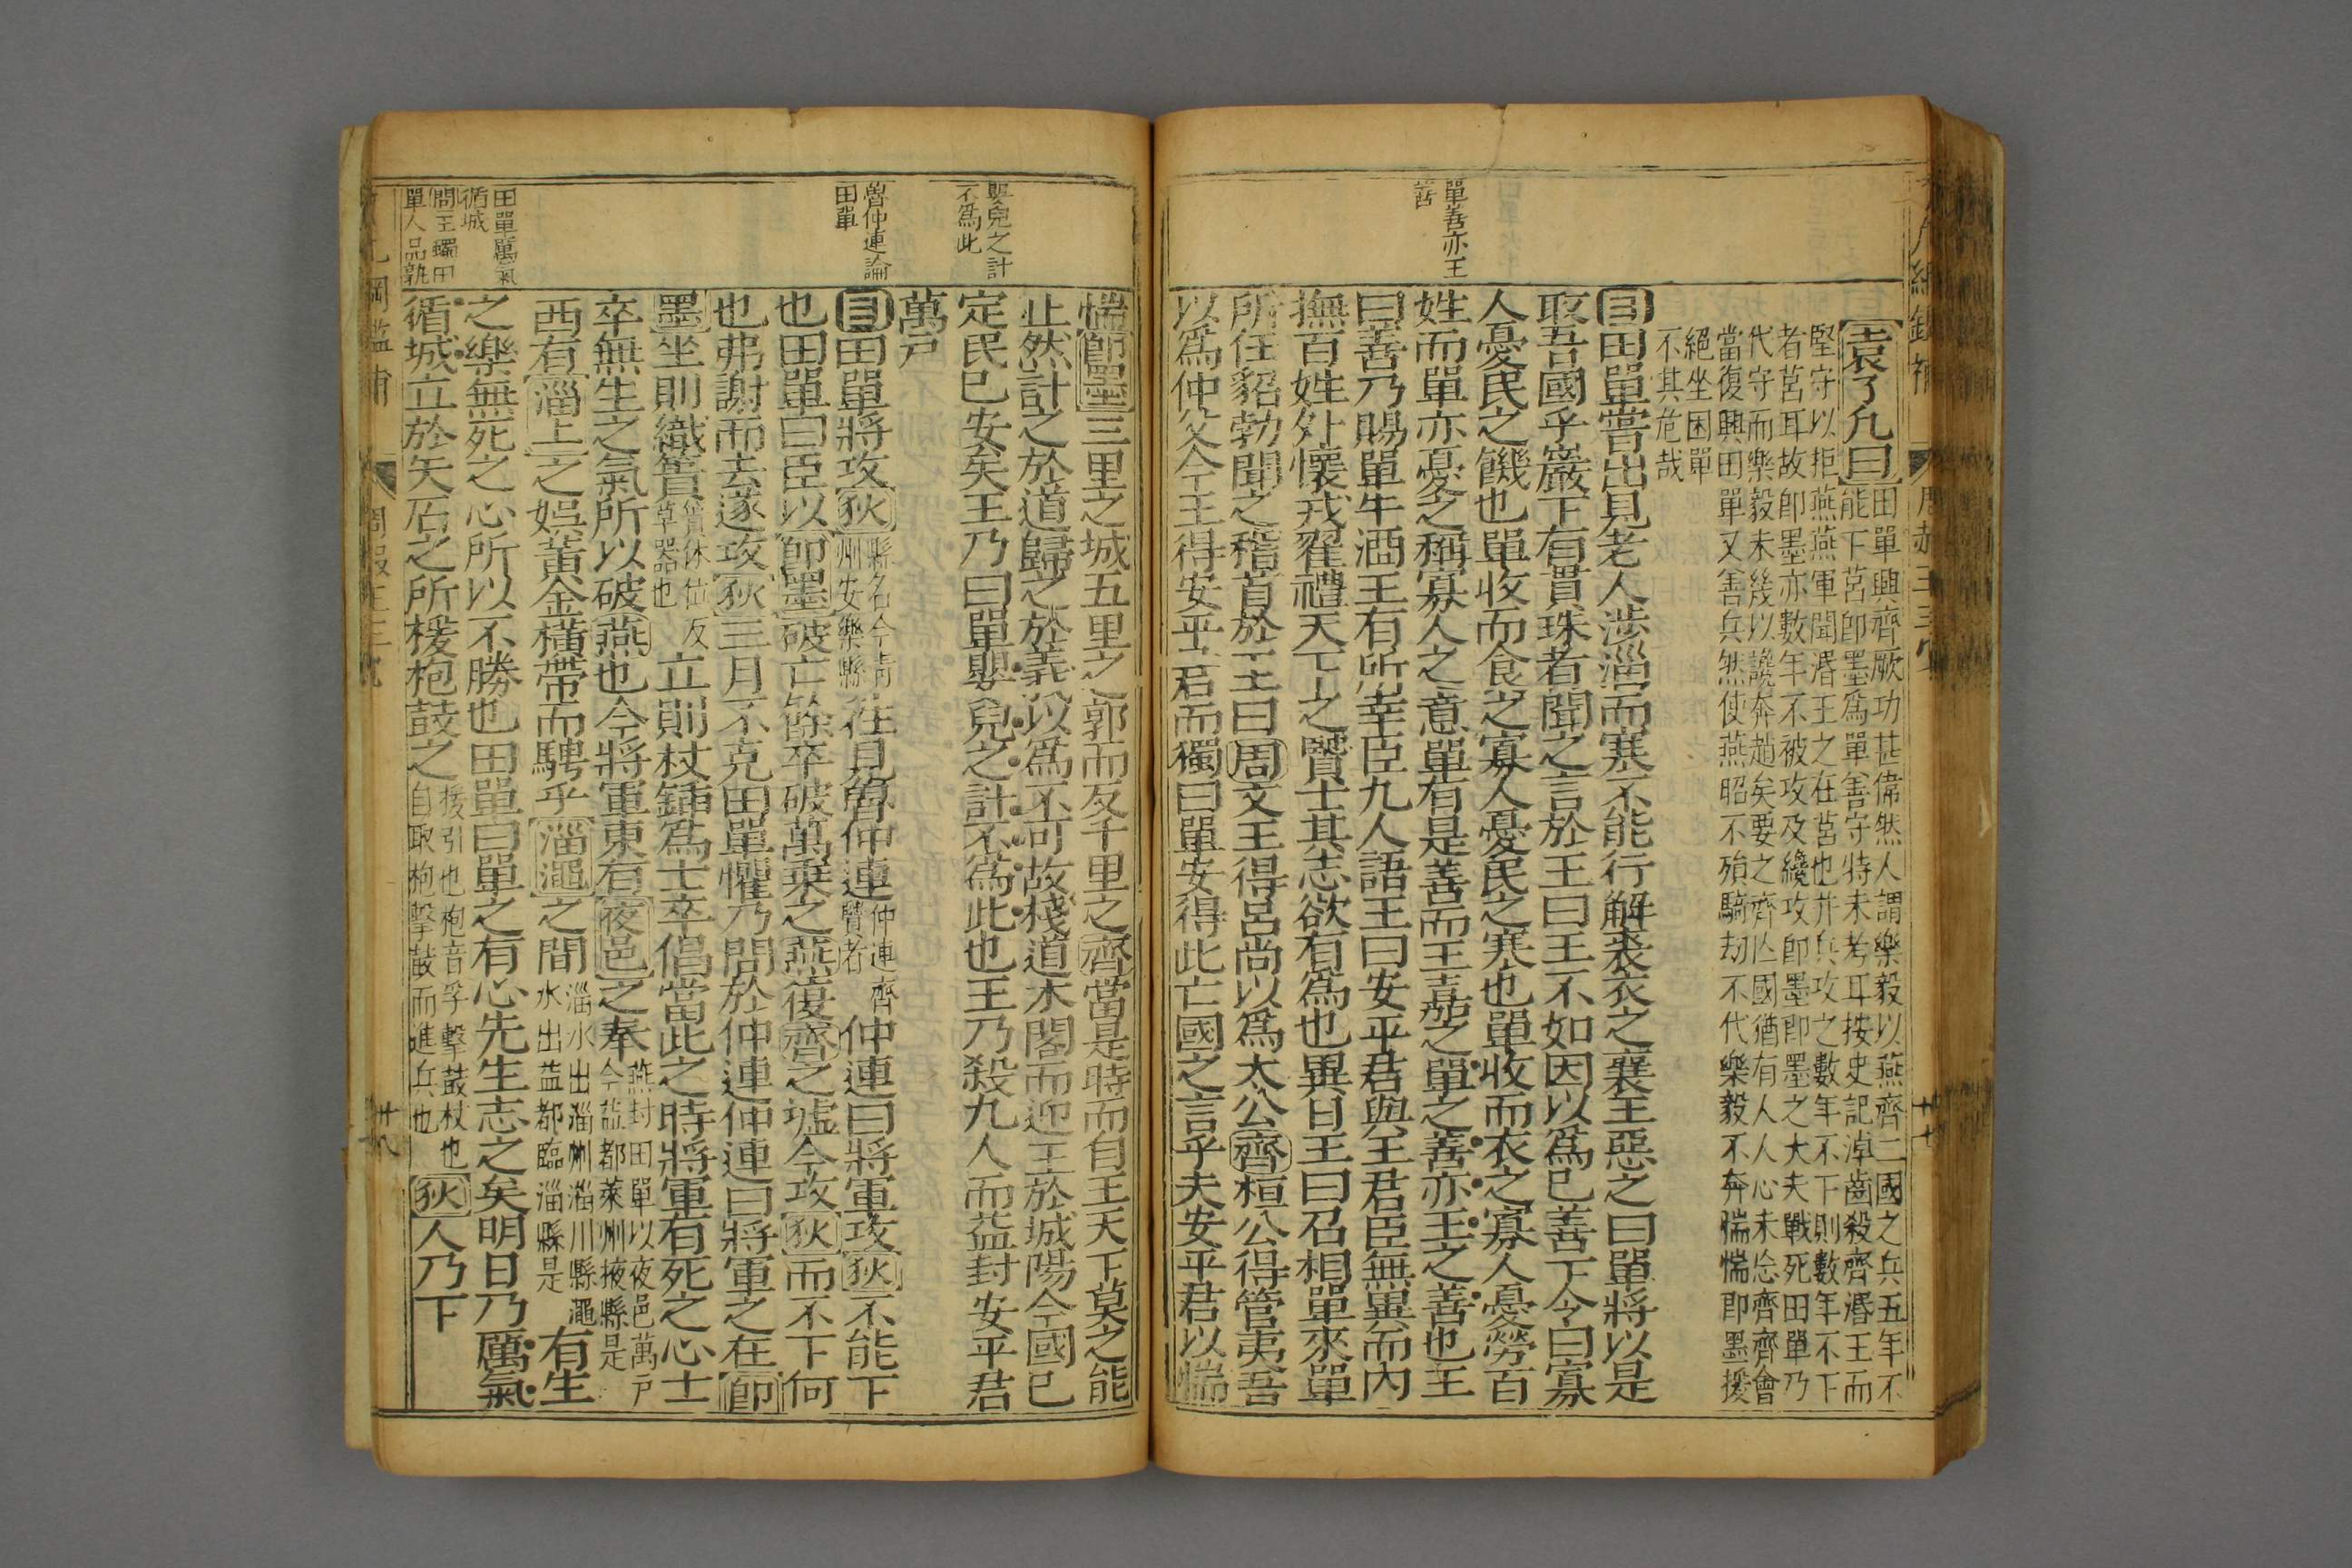 單善亦王
善
袁了凡曰
田單興齊厥功甚偉然人謂樂毅以燕齊二國之兵五年不
能下莒卽墨爲單善守特未考耳按史記淖齒殺齊湣王而
堅守以拒燕燕軍聞湣王之在莒也幷兵攻之數年不下則數年不下
者莒耳故卽墨亦數年不被攻及纔攻卽墨卽墨之大夫戰死田單乃
代守而樂毅未幾以讒奔趙矣要之齊亾國猶有人人心未忘齊齊會
當復興田單又善兵然使燕昭不殂騎劫不代樂毅不奔惴惴卽墨援
絕坐困單
不其危哉
目田單嘗出見老人涉淄而寒不能行解裘衣之襄王惡之曰單將以是
取吾國乎巖下有貫珠者聞之言於王曰王不如因以爲己善下令曰寡
人憂民之饑也單收而食之寡人憂民之寒也單收而衣之寡人憂勞百
姓而單亦憂之稱寡人之意單有是善而王嘉之單之善亦王之善也王
曰善乃賜單牛酒王有所幸臣九人語王曰安平君與王君臣無異而內
撫百姓外懷戎翟禮天下之賢士其志欲有爲也異日王曰召相單來單
所任貂勃聞之稽首於王曰周文王得呂尚以爲太公齊桓公得管夷吾
以爲仲父今王得安平君而獨曰單安得此亡國之言乎夫安平君以惴
嬰兒之計
不爲此
魯仲連論
田單
田單厲氣
循城
問王蠋田
單人品孰
惴卽墨三里之城五里之郭而反千里之齊當是時而自王天下莫之能
止然計之於道歸之於義以爲不可故棧道木閣而迎王於城陽今國已
定民已安矣王乃曰單嬰兒之計不爲此也王乃殺九人而益封安平君
萬戶
目田單將攻狄縣名今靑州安樂縣往見魯仲連仲連齊賢者仲連曰將軍攻狄不能下
也田單曰臣以卽墨破亡餘卒破萬乘之燕復齊之墟今攻狄而不下何
也弗謝而去遂攻狄三月不克田單懼乃問於仲連仲連曰將軍之在卽
墨坐則織簣簣休位反草器也立則杖鍤爲士卒倡當此之時將軍有死之心士
卒無生之氣所以破燕也今將軍東有夜邑之奉燕封田單以夜邑萬戶今益都萊州掖縣是
西有淄上之娛黃金橫帶而騁乎淄澠之間淄水出淄州淄川縣澠水出益都臨淄縣是有生
之樂無死之心所以不勝也田單曰單之有心先生志之矣明日乃厲氣
循城立於矢石之所援枹鼓之援引也枹音孚擊鼓杖也自取枹擊鼓而進兵也狄人乃下